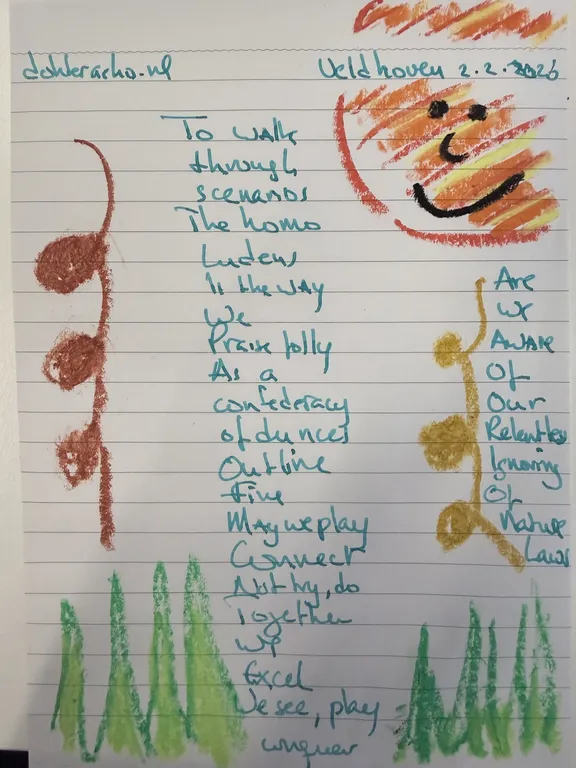 dohleracho.nl
Veldhoven 2.2.2026
To walk
through
scenarios
The homo
Ludens
Is the way
We
Praise folly
As a
confederacy
of dunces
Outline
Five
May we play
Connect
Not try, do
Together
We
Excel
We see, play
conquer
Are
We
Aware
Of
Our
Relentless
Ignoring
Of
Nature
Laws